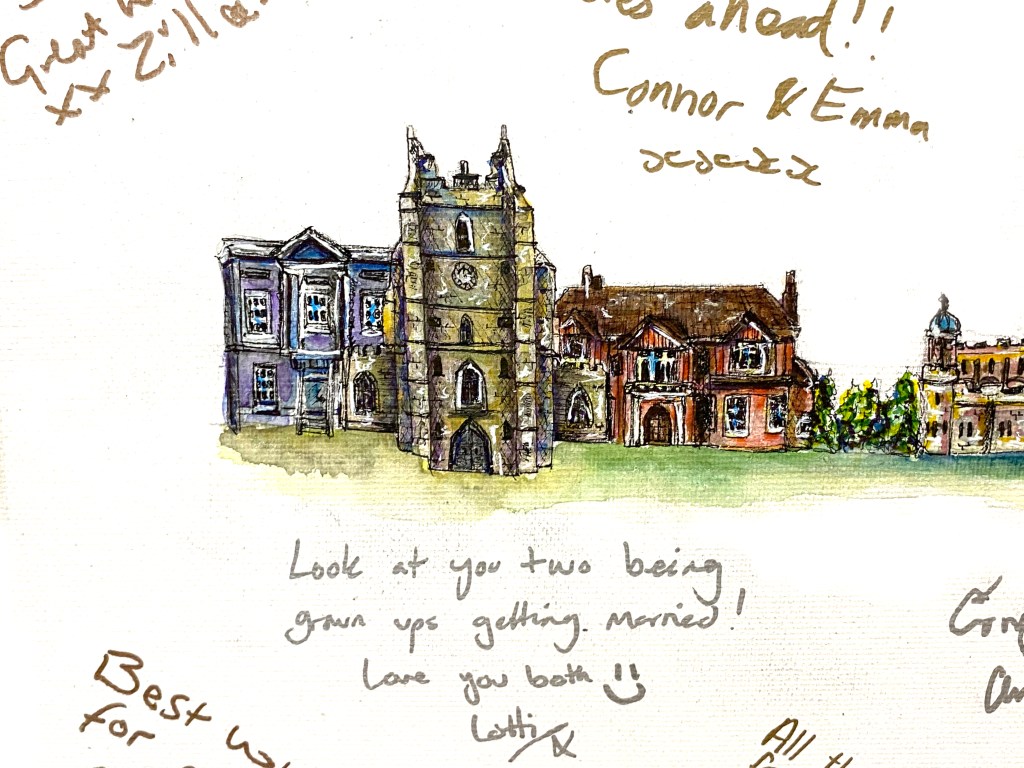 Great
xx Zilla
ahead!!
Connor & Emma
xxxxx
Look at you two being
grown ups getting married!
Love you both
Lotti x
Best
for
All